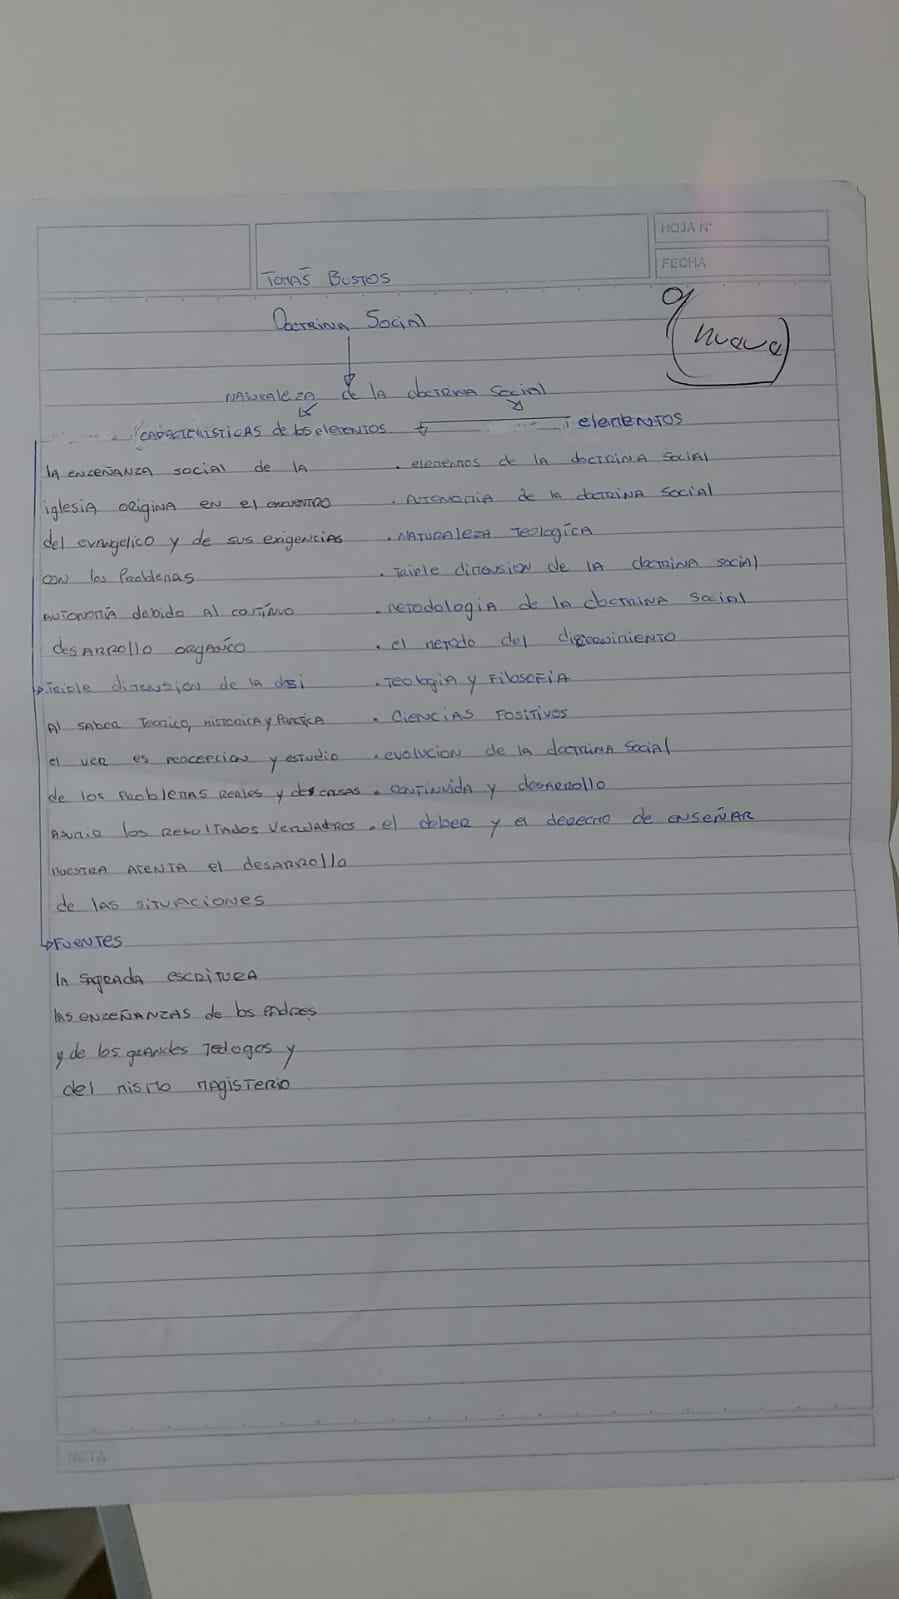 HOJA N°
FECHA
Tomás Bustos
Doctrina Social
9 (nueve)
Naturaleza de la doctrina social
Características de los elementos
elementos
la enceñanza social de la
iglesia origina en el encuentro
del evangelico y de sus exigencias
con los Problemas
autonomía debido al continuo
desarrollo organico
Triple dimension de la dsi
Al saber Teorico, historica y Practica
el ver es percepcion y estudio
de los problemas reales y de causas
los resultados verdadros
nuestra atenta el desarrollo
de las situaciones
Fuentes
la sagrada escritura
las enceñanzas de los Padres
y de los grandes Teologos y
del mismo magisterio
. elemenos de la doctrina social
. Autonomia de la doctrina social
. Naturaleza Teologíca
. Triple dimension de la doctrina social
. metodologia de la doctrina social
. el metodo del discernimiento
. Teologia y Filosofia
. Ciencias Positivos
. evolucion de la doctrina social
. continuida y desarrollo
. el deber y el derecho de enseñar
NOTA